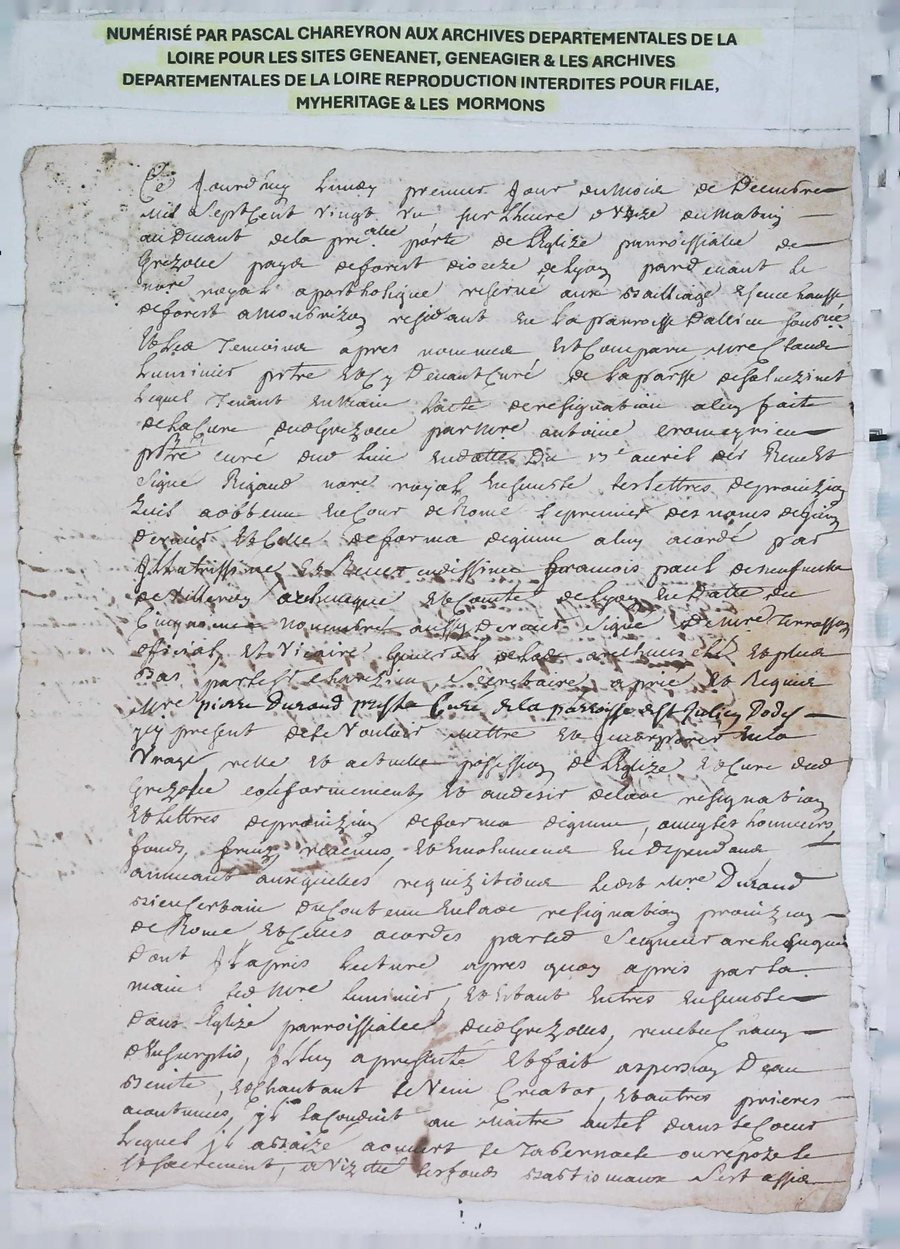 NUMÉRISÉ PAR PASCAL CHAREYRON AUX ARCHIVES DEPARTEMENTALES DE LA
LOIRE POUR LES SITES GENEANET, GENEAGIER & LES ARCHIVES
DEPARTEMENTALES DE LA LOIRE REPRODUCTION INTERDITES POUR FILAE,
MYHERITAGE & LES MORMONS
Ce Jourd'huy Lundy premier Jour du mois de Decembre
mil sept cent vingt un sur l'heure d'unze du matin
au devant de la porte de l'Eglize parroissialle de
Grezolle pays de forest dioceze de Lyon pardevant le
nore royal apostholique reservé aux Bailliage et senechaussé
de forest a Montbrizon residant en la parroisse D'allieu
et les Temoins apres nommes, est comparu mre Claude
Luminier pbtre et cy devant curé de la parsse de
lequel tenant en main l'acte de resignation a luy faite
de la cure dud Grezolle par mre antoine
pbtre curé dud lieu en datte du avril
signe Rigaud nore royal ensemble les lettres de provizion
qu'il a obtenu en cour de Rome le premier des nones de
dernier et celle de forma dignum a luy acordé par
Illustrissime et Reverendissime francois paul de neufville
de Villeroy archeveque et comte de Lyon en datte du
cinq novembre aussy dernier signé Terrasson
official et Vicaire general de archeveché, et plus
bas par secretaire a prié et requis
mre pierre Durand prestre Curé de la parroisse de st Julien Dodes
y present de le vouloir mettre et en la
vraye relle et actuelle possession de l'Eglize et cure dud
Grezolle conformement et au desir de lade resignation
et lettres de provizion de forma dignum, avec les honneurs,
fonds, fruis, revenus, et emolumens en dependans,
auxquelles requizitions led mre Durand
bien certain du contenu en lade resignation provizion
de Rome et celles acordés par led seigneur archeveque
dont Il a pris lecture apres quoy a pris par la
main led mre Luminier, et estant entres ensemble
dans l'Eglize parroissialle dud Grezolles,
de surplis, Il luy a presenté et fait aspersion d'eau
benite, et chantant le Veni Creator, et autres prieres
acoutumes, l'a conduit au maitre autel dans le coeur
lequel Jl a baizé a ouvert le Tabernacle ou repoze le
st sacrement, a vizitté les fonds s'est assis